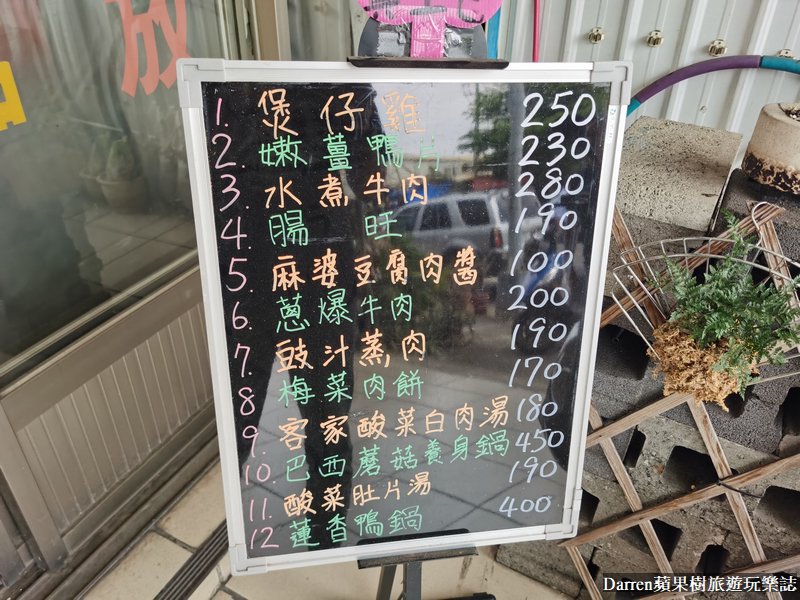 放
1. 煲仔雞 250
2. 嫩薑鴨片 230
3. 水煮牛肉 280
4. 腸旺 190
5. 麻婆豆腐肉醬 100
6. 蔥爆牛肉 200
7. 豉汁蒸肉 190
8 梅菜肉餅 170
9. 客家酸菜白肉湯 180
10. 巴西蘑菇養身鍋 450
11. 酸菜肚片湯 190
12 蓮香鴨鍋 400
Darren蘋果樹旅遊玩樂誌